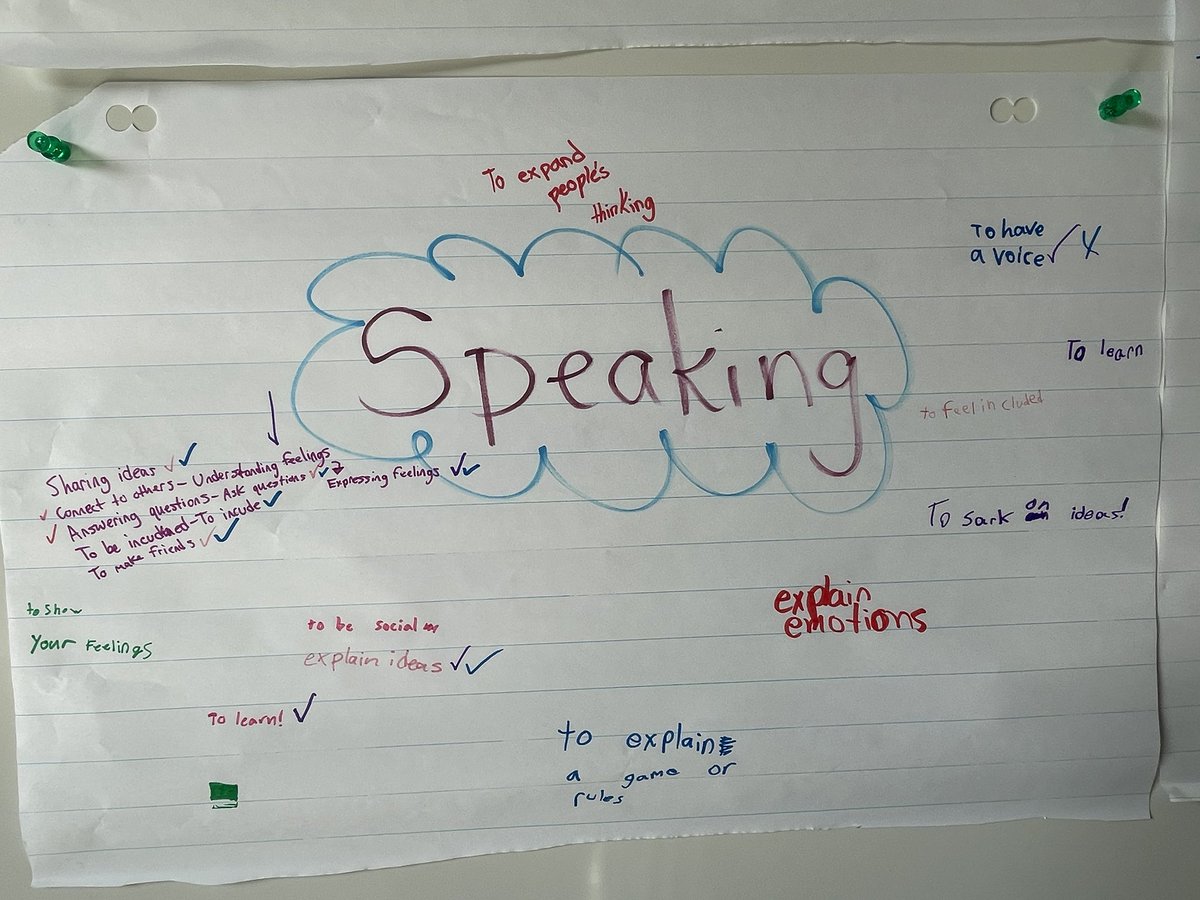 To expand
people's
thinking
To have
a voice
Speaking
To learn
to feel included
Sharing ideas
Connect to others - Understanding feelings
Answering questions - Ask questions
Expressing feelings
To be incuded - To incude
To make friends
To sark on ideas!
to show
Your Feelings
explain
emotions
to be social
explain ideas
To learn!
to explain
a game or
rules